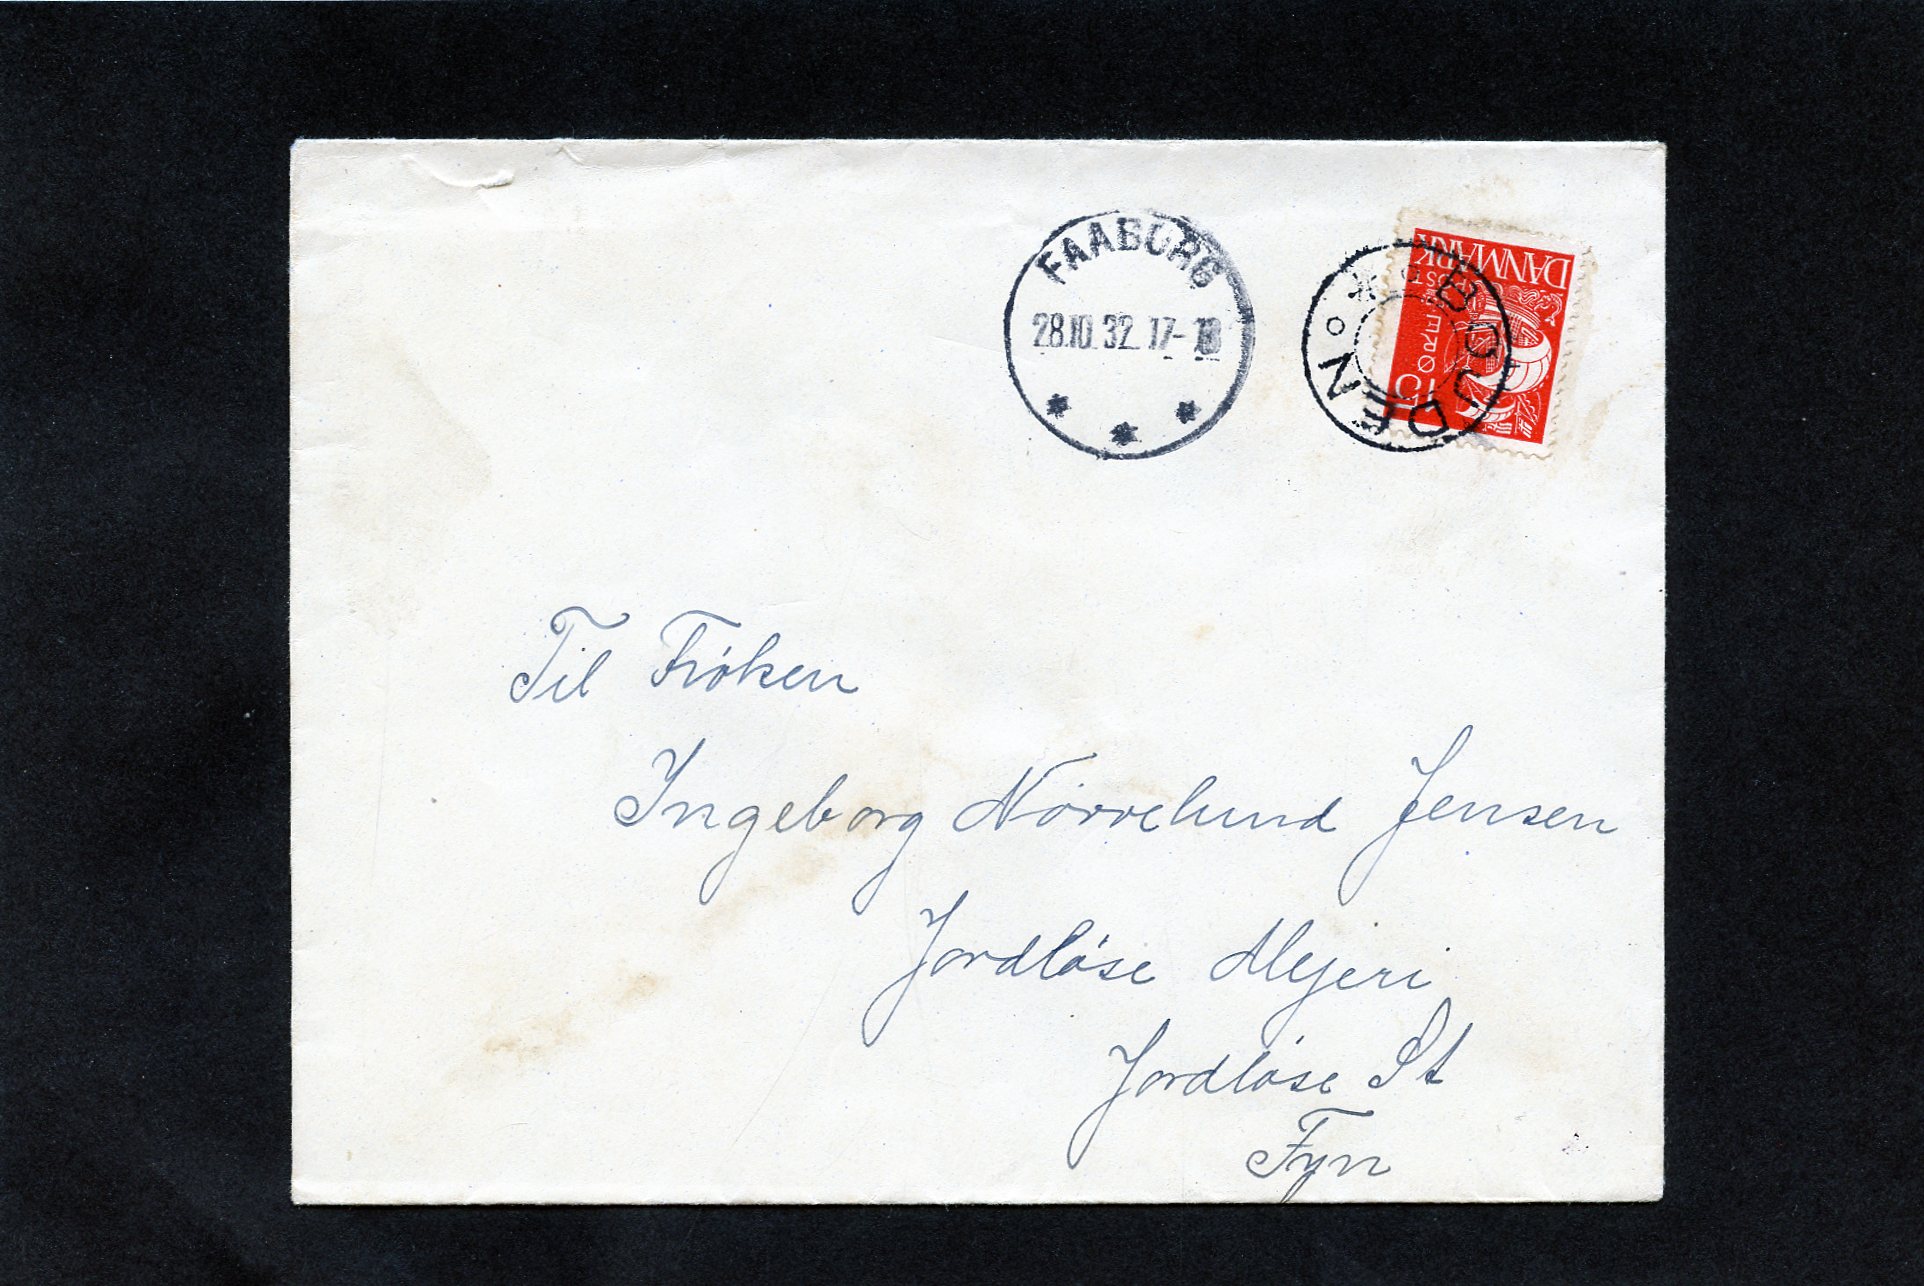 FAABORG
28.10.32. 17-18
BØJDEN
DANMARK
POSTFÆRGE
15 ØRE
Til Fröken
Ingeborg Nörrelund Jensen
Jordlöse Mejeri
Jordlöse St
Fyn